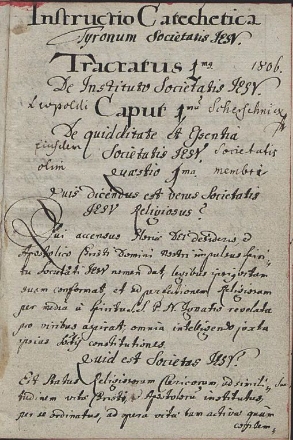 Instructio Catechetica
Tyronum Societatis IESV.
Tractatus 1mus 1806.
De Instituto Societatis IESV.
Leopoldi Caput 1mũ Scherschnick
De quidditate et Essentia
ejusdem Societatis IESV. Societatis
olim Quaestio 1ma membri
Quis dicendus est verus Societatis
IESV Religiosus?
Qui accensus
Apostolico Christi Domini nostri impulsus spiri-
tu Societati IESV nomen dat, legibus
conformat, et ad perfectionem Religiosam
per media a Spirituali P. N. Ignatio revelata
pro viribus aspirat, omnia intelligendo juxta
ipsius Societatis constitutiones.
Quid est Societas IESV?
Est Status Religiosorum Clericorum, ad simili-
tudinem vitae Christi, Apostolorum institutus,
per se ordinatus, ad opera vitae tam activae quam